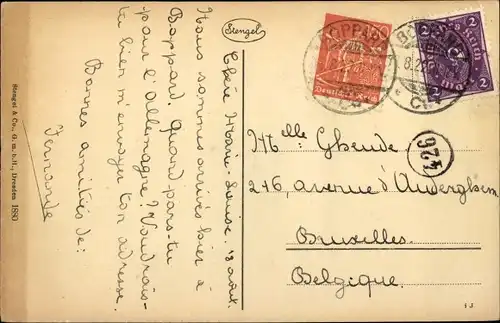 Stengel
Chère Marie-Louise. 13 août.
Nous sommes arrivés hier à
Boppard. Quand pars-tu
pour l'Allemagne? Voudrais-
tu bien m'envoyer ton adresse.
Bonnes amitiés de:
Fernande
Stengel & Co., G. m. b. H., Dresden 1880
BOPPARD
Deutsches Reich
BOPPARD
2
2
Mark
Mlle Gheude
426
216, avenue d'Auderghem
Bruxelles.
Belgique.